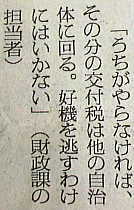 「うちがやらなければ、
その分の交付税は他の自治
体に回る。好機を逃すわけ
にはいかない」（財政課の
担当者）